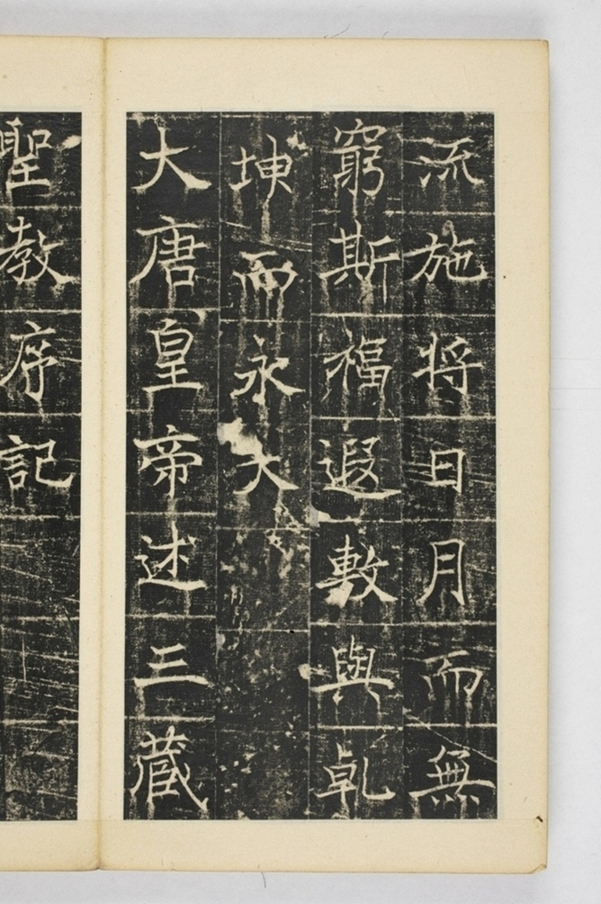 流施将日月而無
窮斯福遐敷與乹
坤而永大
大唐皇帝述三蔵
聖教序記